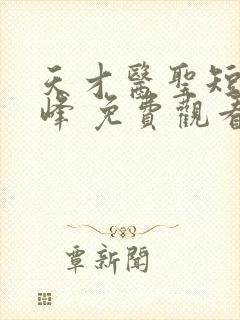 天才醫聖短
峰 免費觀看
覃新聞